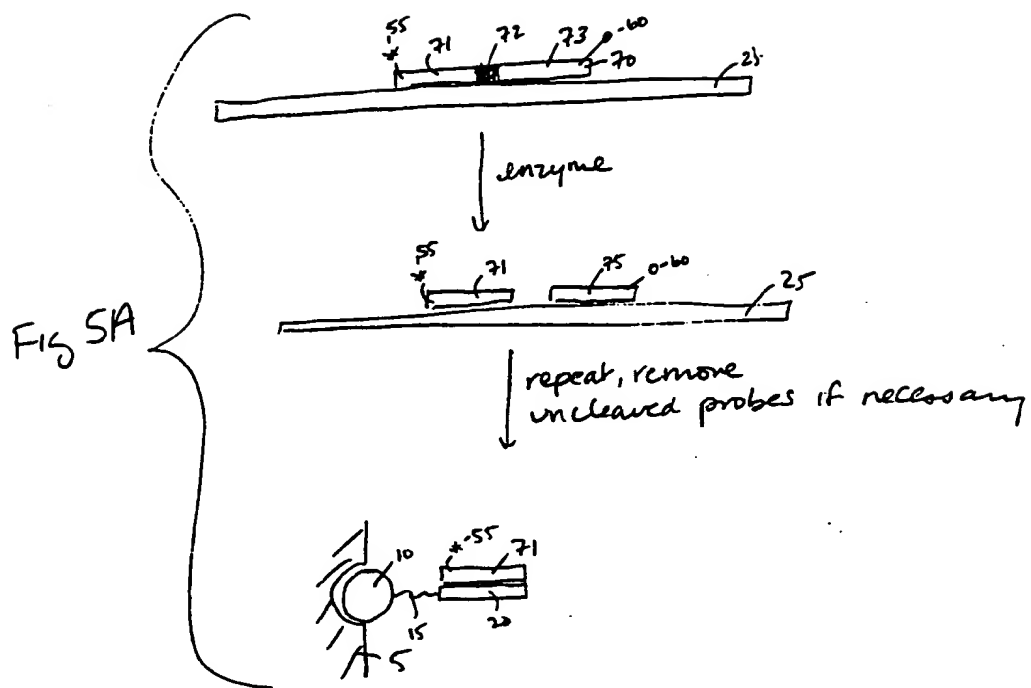 55
*
71
72
73
-60
70
25
enzyme
55
*
71
75
0-60
25
Fig 5A
repeat, remove
uncleaved probes if necessary
10
*-55
71
15
20
5